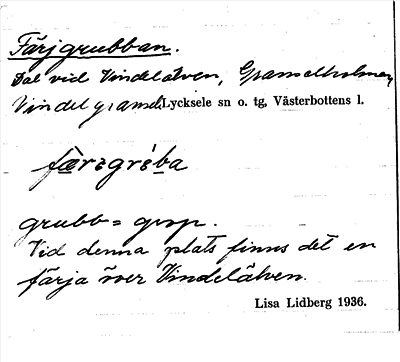 Färjgrubban.
Dal vid Vindelälven, Gramselholmen,
Vindelgransele Lycksele sn o. tg, Västerbottens l.
færɪgrèba
grubb = grop.
Vid denna plats finns det en
färja över Vindelälven.
Lisa Lidberg 1936.